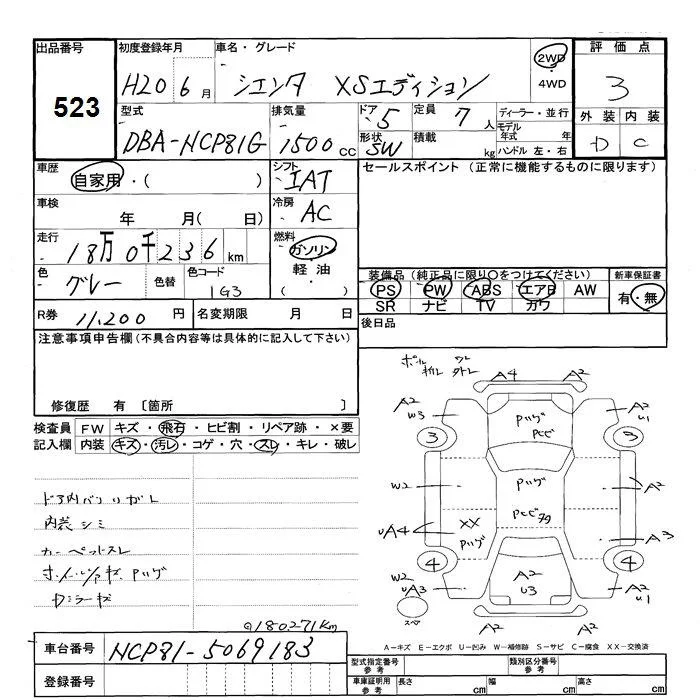 出品番号 初度登録年月 車名・グレード 評価点
523
H20 6月 シエンタ XSエディション 2WD・4WD 3
型式 排気量 ドア 5 定員 7人 ディーラー・並行 外装 内装
DBA-NCP81G 1500cc 形状 SW 積載 kg モデル年式 年 ハンドル 左・右 D C
車歴 自家用・( ) シフト IAT セールスポイント (正常に機能するものに限ります)
車検 年 月( 日) 冷房 AC
走行 18万0千236km 燃料 ガソリン 軽油・( )
色 グレー 色替 色コード 1G3 装備品(純正品に限り○をつけてください) 新車保証書
PS PW ABS エアB AW 有・無
SR ナビ TV カワ
R券 11,200円 名変期限 月 日 後日品
注意事項申告欄(不具合内容等は具体的に記入して下さい)
修復歴 有 〔箇所 〕
検査員 FW キズ・飛石・ヒビ割・リペア跡・×要
記入欄 内装 キズ・汚レ・コゲ・穴・スレ・キレ・破レ
内装シミ
カーペットスレ
ドミラーキズ
@180271Km
A4 A2
A2 W3 A2 U1
Pハゲ
3 3
W2 Pハゲ A2
UA4 XX Pハゲ A3
4 4
W2 UA3 A2 U3 A2 U1
スペア
A2 A2
A-キズ E-エクボ U-凹み W-補修跡 S-サビ C-腐食 XX-交換済
車台番号 NCP81-5069183
登録番号
型式指定番号 参考 類別区分番号 参考
車庫証明用 参考 長さ cm 幅 cm 高さ cm